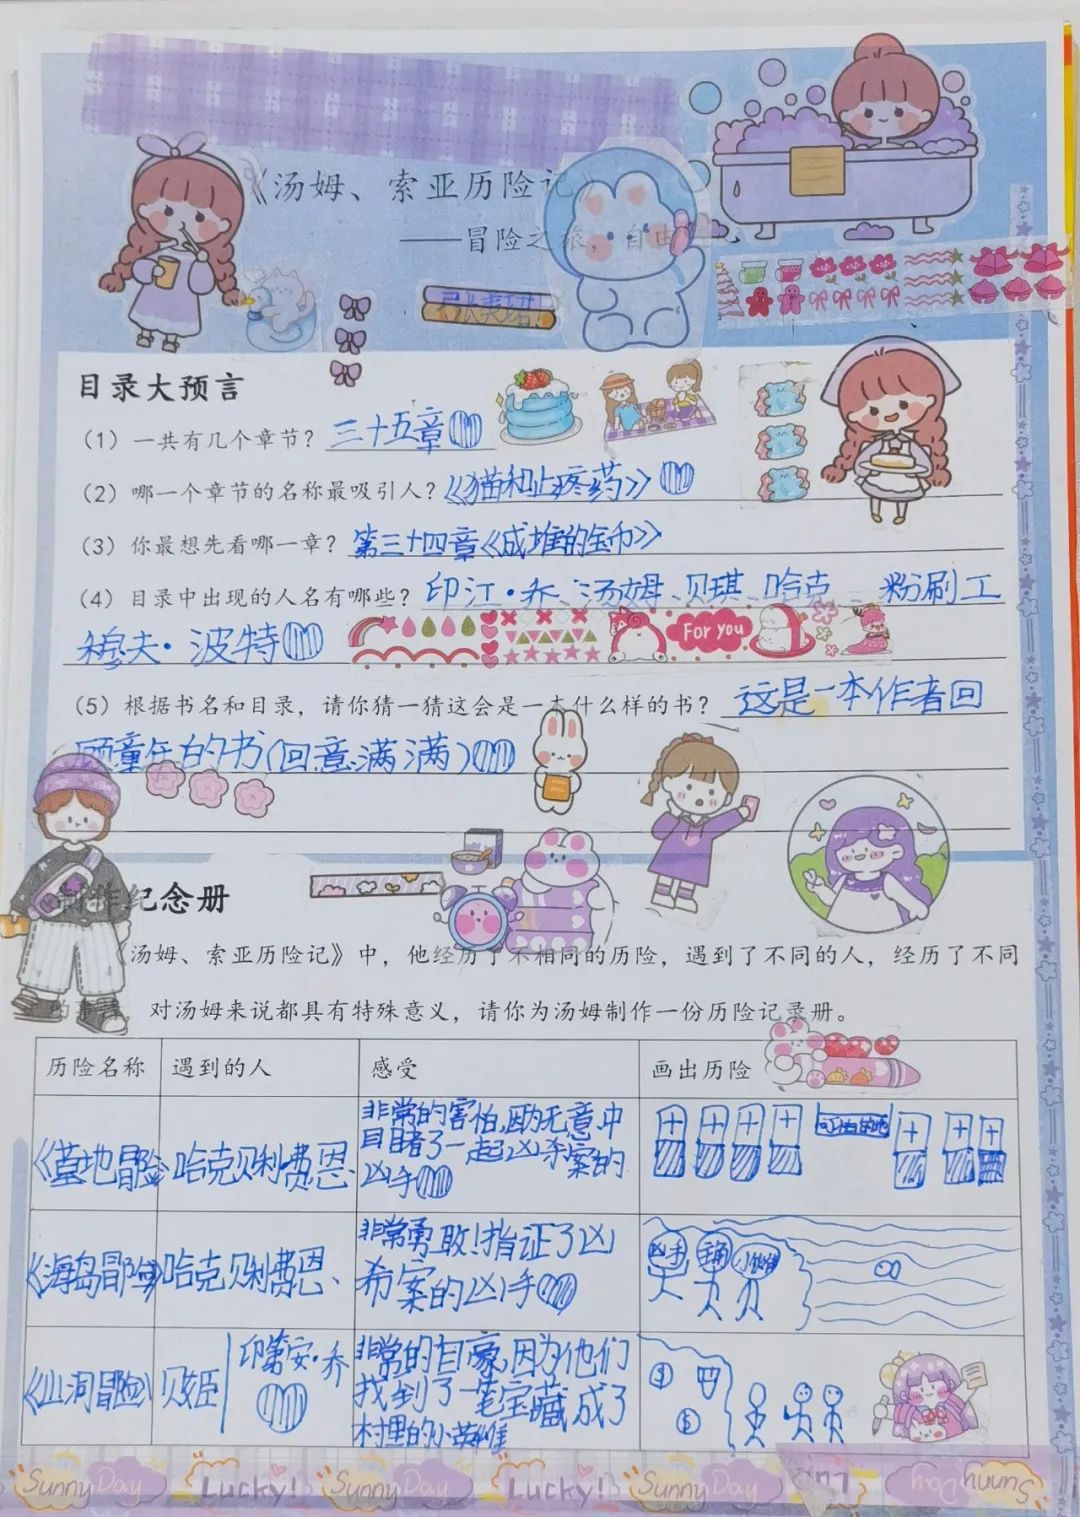 《汤姆、索亚历险记》
——冒险之旅，自由
目录大预言
（1）一共有几个章节？三十五章
（2）哪一个章节的名称最吸引人？《猫和止疼药》
（3）你最想先看哪一章？第三十四章《成堆的金币》
（4）目录中出现的人名有哪些？印江·乔、汤姆、贝琪、哈克 粉刷工
穆夫·波特
For you
（5）根据书名和目录，请你猜一猜这会是一本什么样的书？这是一本作者回
顾童年的书(回意满满)
制作纪念册
汤姆、索亚历险记》中，他经历了不相同的历险，遇到了不同的人，经历了不同
的事情，对汤姆来说都具有特殊意义，请你为汤姆制作一份历险记录册。
历险名称 遇到的人 感受 画出历险
《墓地冒险》 哈克贝利费恩、 非常的害怕，因为无意中
目睹了一起凶杀案的
凶手
《海岛冒险》 哈克贝利费恩、 非常勇敢！指证了凶
希案的凶手
凶手
《山洞冒险》 贝姬 印第安·乔 非常的自豪，因为他们
找到了一笔宝藏成了
村里的小英雄
Sunny Day Lucky! Sunny Day Lucky! Sunny Day Sunny Day